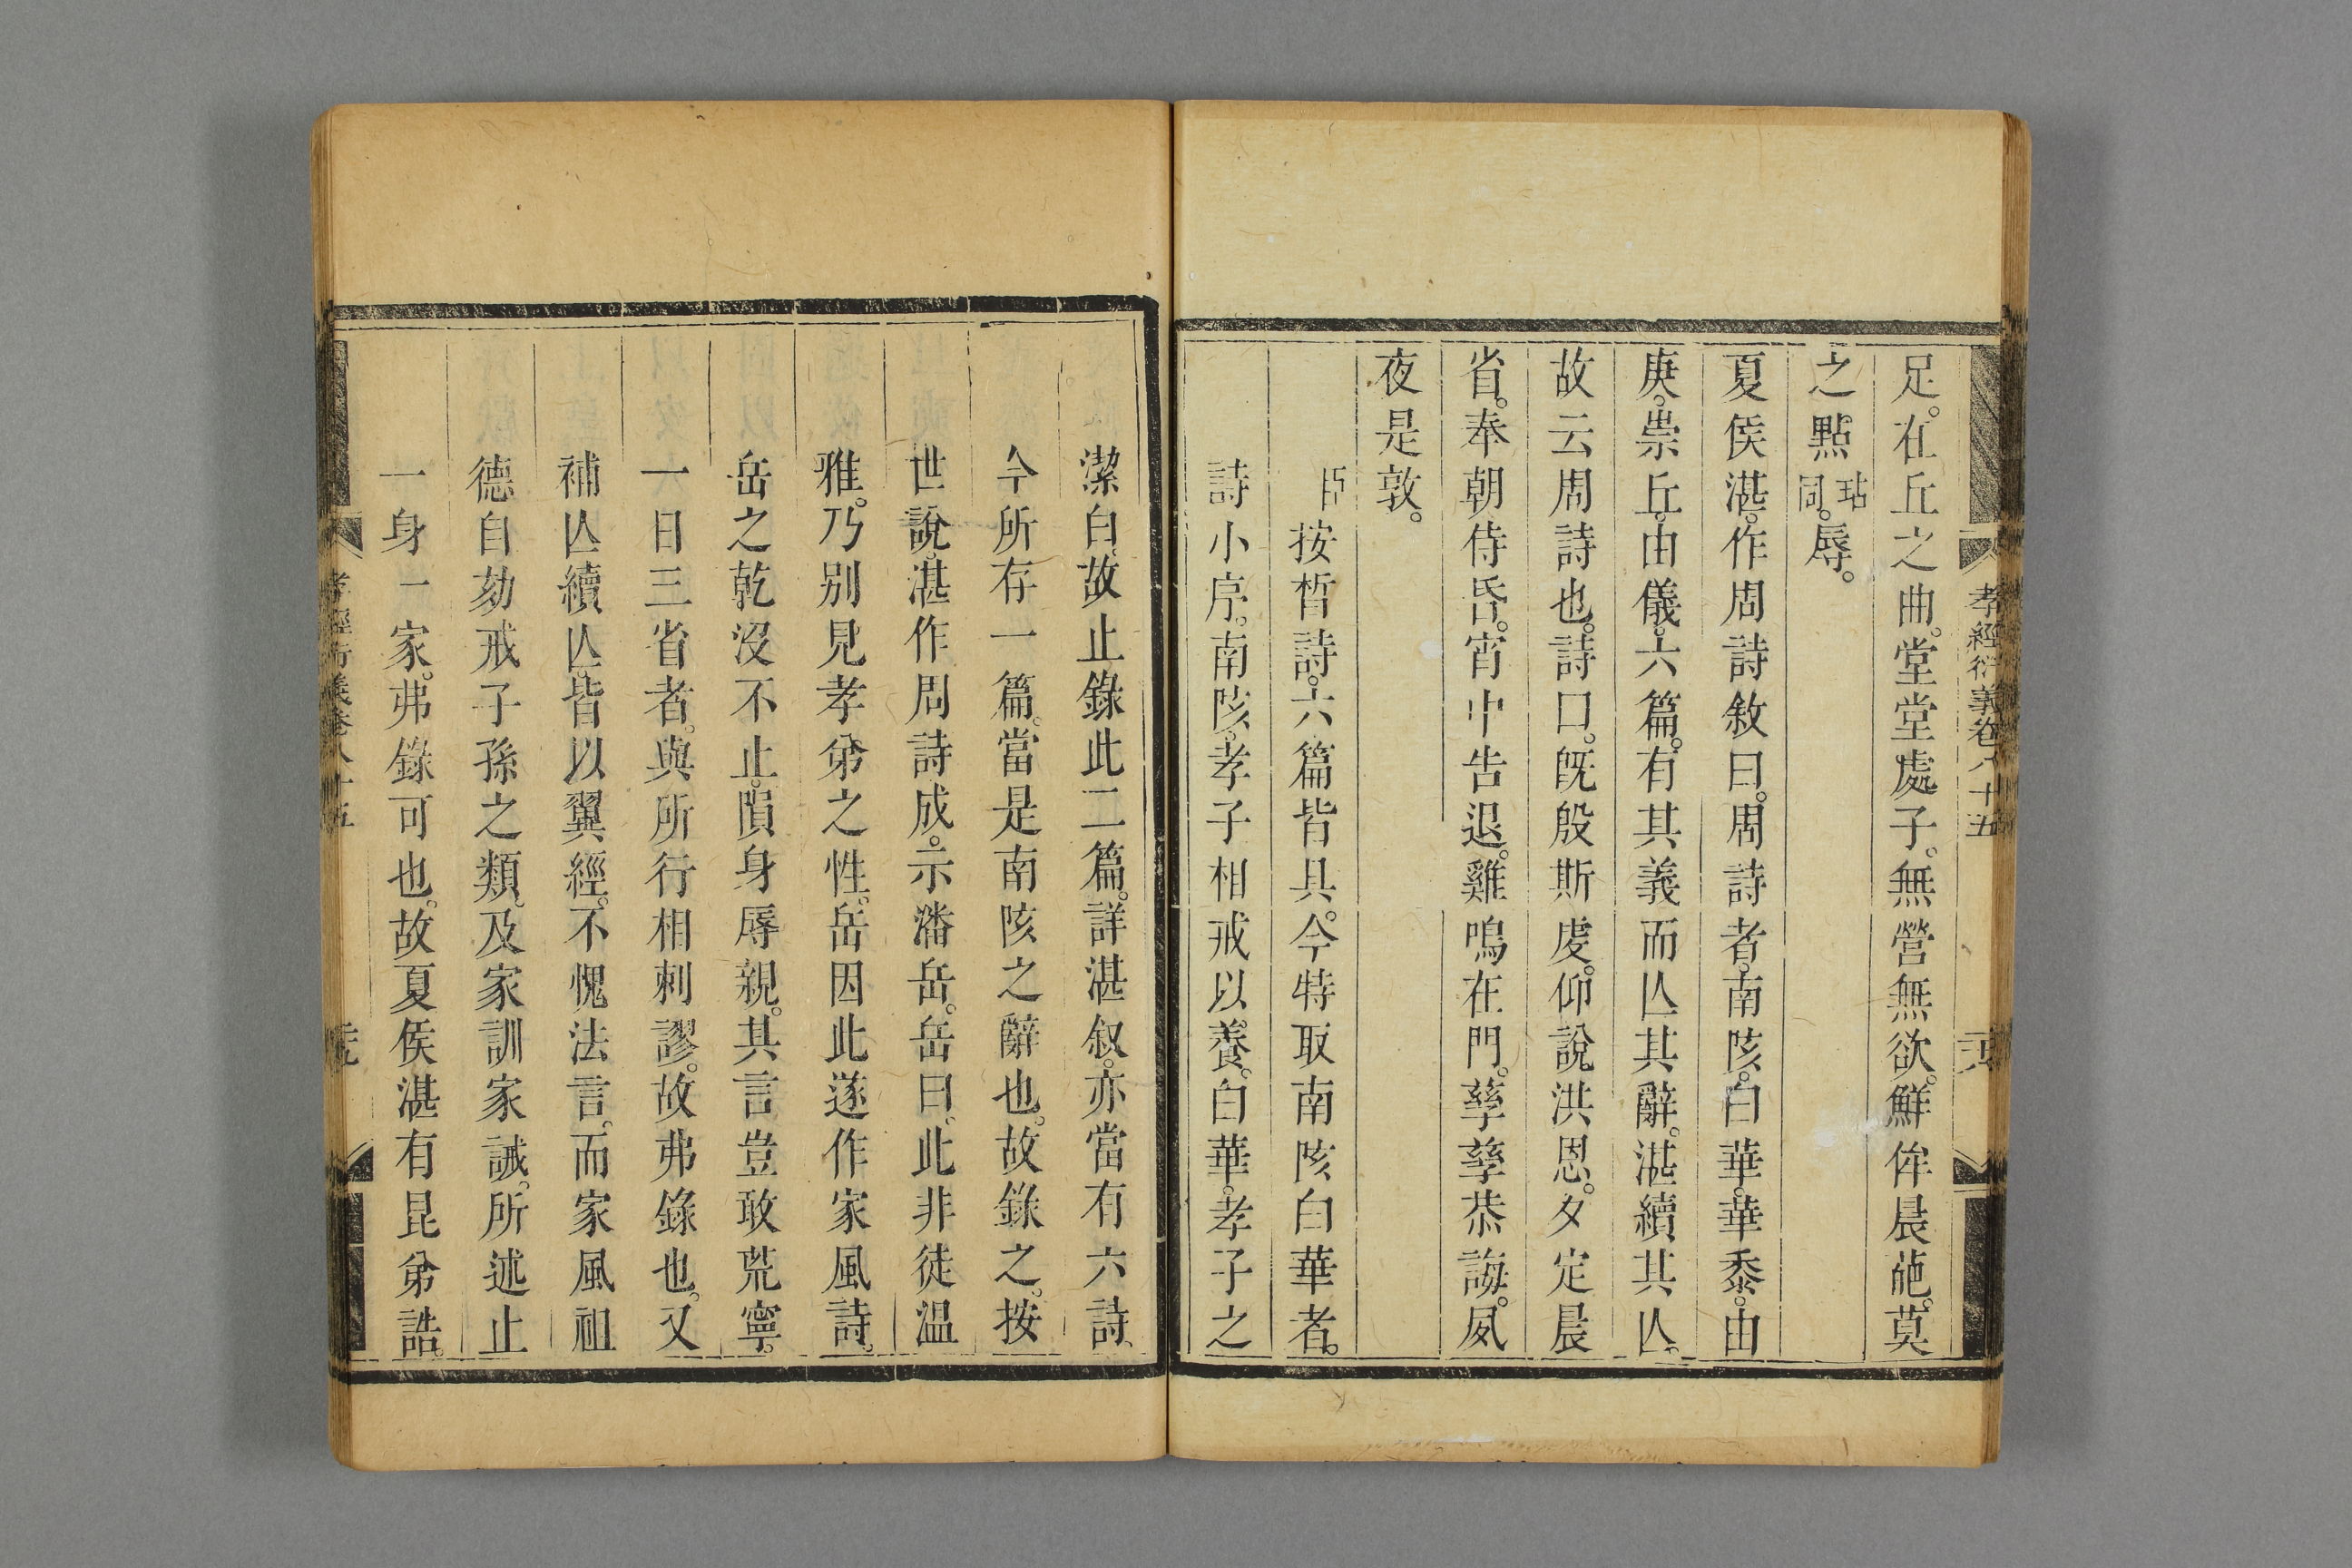 孝經衍義卷八十五
足。在丘之曲。堂堂處子。無營無欲。鮮侔晨葩。莫
之點玷同。辱。
夏侯湛。作周詩敘曰。周詩者。南陔。白華。華黍。由
庚。崇丘。由儀。六篇。有其義而亾其辭。湛續其亾。
故云周詩也。詩曰。旣殷斯虔。仰說洪恩。夕定晨
省。奉朝侍昏。宵中告退。雞鳴在門。孳孳恭誨。夙
夜是敦。
臣按皙詩。六篇皆具。今特取南陔白華者。
詩小序。南陔。孝子相戒以養。白華。孝子之
潔白。故止錄此二篇。詳湛叙。亦當有六詩。
今所存一篇。當是南陔之辭也。故錄之。按
世說。湛作周詩成。示潘岳。岳曰。此非徒温
雅。乃别見孝弟之性。岳因此遂作家風詩。
岳之乾沒不止。隕身辱親。其言豈敢荒寧。
一日三省者。與所行相刺謬。故弗錄也。又
補亾續亾。皆以翼經。不愧法言。而家風祖
德自劾戒子孫之類。及家訓家誡。所述止
一身一家。弗錄可也。故夏侯湛有昆弟誥。
孝經衍義卷八十五